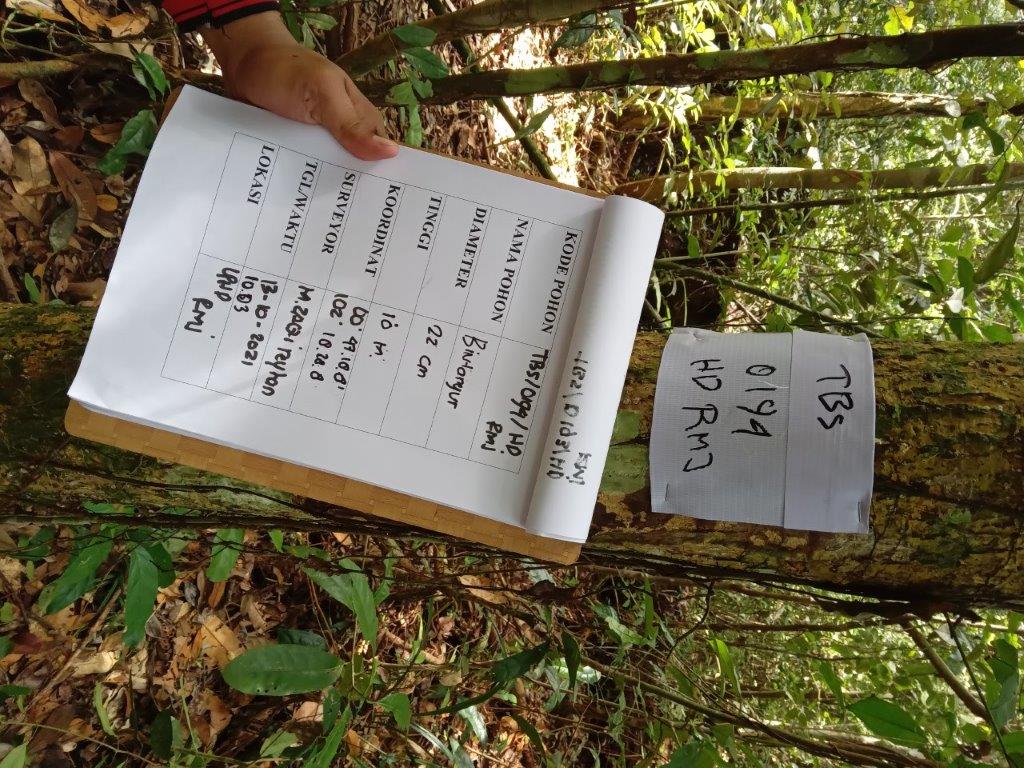 TBS
0194
HD RMJ
RMJ
TB2\0103\HD
KODE POHON TBS/0194/HD
RMJ
NAMA POHON Bintangur
DIAMETER 22 cm
TINGGI 10 m
KOORDINAT 00°
102° 18.20.8
SURVEYOR M.
TGL/WAKTU 13-10-2021
10.03
LOKASI LPHD
RMJ